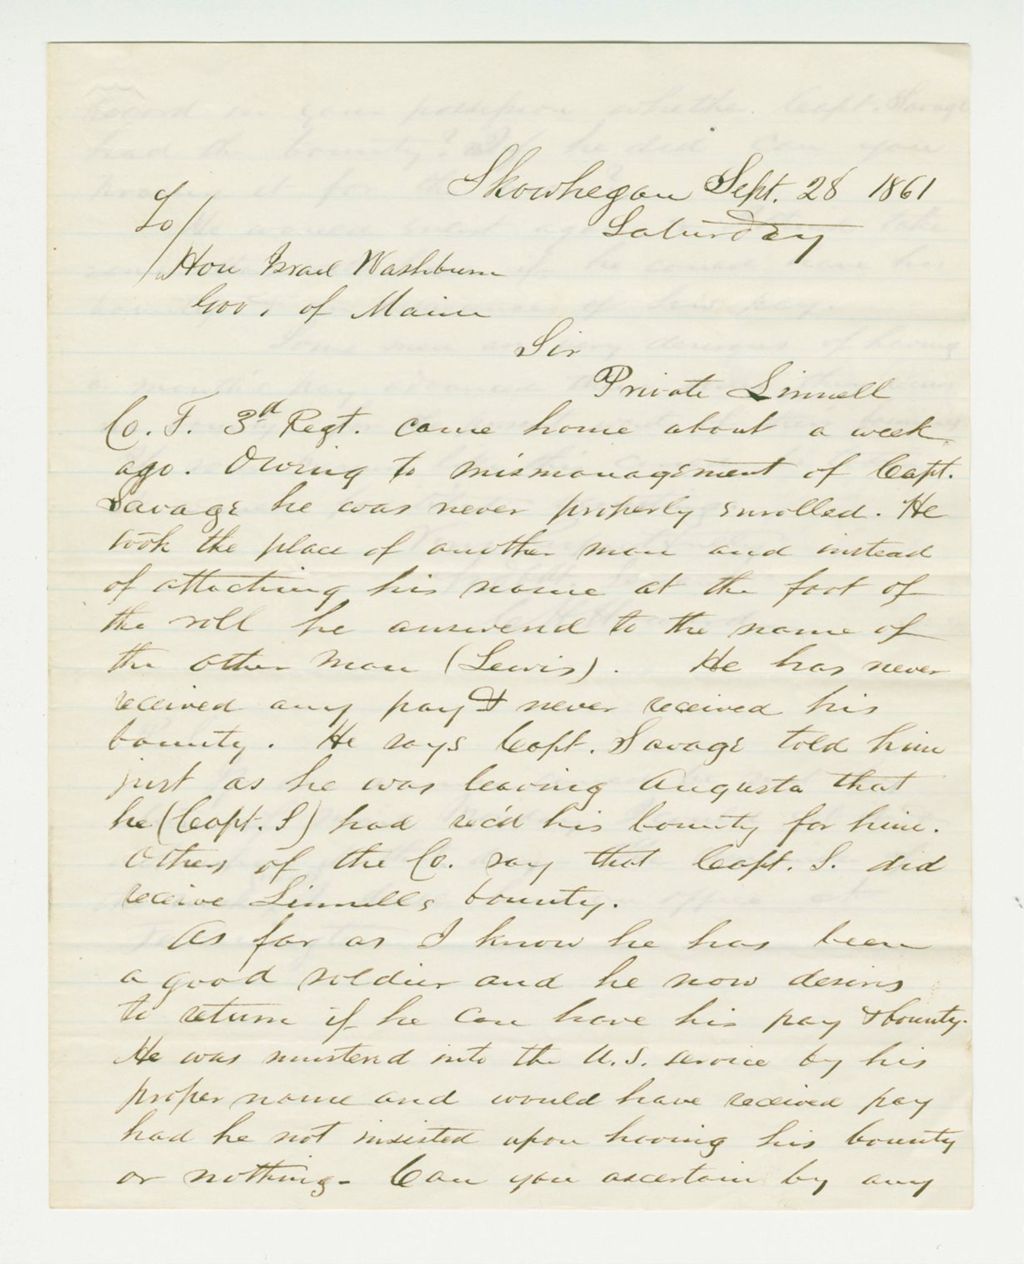 Skowhegan Sept. 28 1861
Saturday
To/
Hon Israel Washburn
Gov. of Maine
Sir
Private Linnell
Co. F. 3d Regt. came home about a week
ago. Owing to mismanagement of Capt.
Savage he was never properly enrolled. He
took the place of another man and instead
of attaching his name at the foot of
the roll he answered to the name of
the other man (Lewis). He has never
received any pay & never received his
bounty. He says Capt. Savage told him
just as he was leaving Augusta that
he (Capt. S) had rec'd his bounty for him.
Others of the Co. say that Capt. S. did
receive Linnells bounty.
As far as I know he has been
a good soldier and he now desires
to return if he can have his pay & bounty.
He was mustered into the U.S. service by his
proper name and would have received pay
had he not insisted upon having his bounty
or nothing. Can you ascertain by any